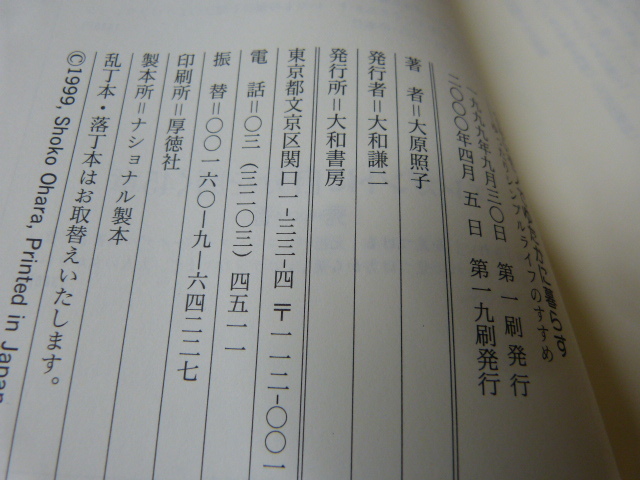 かに暮らす
ルライフのすすめ
一九九九年九月三〇日 第一刷発行
二〇〇〇年四月 五 日 第一九刷発行
著 者＝大原照子
発行者＝大和謙二
発行所＝大和書房
東京都文京区関口一-三三-四 〒一一二-〇〇一
電 話＝〇三（三二〇三）四五一一
振 替＝〇〇一六〇-九-六四二二七
印刷所＝厚徳社
製本所＝ナショナル製本
乱丁本・落丁本はお取替えいたします。
©1999, Shoko Ohara, Printed in Japan